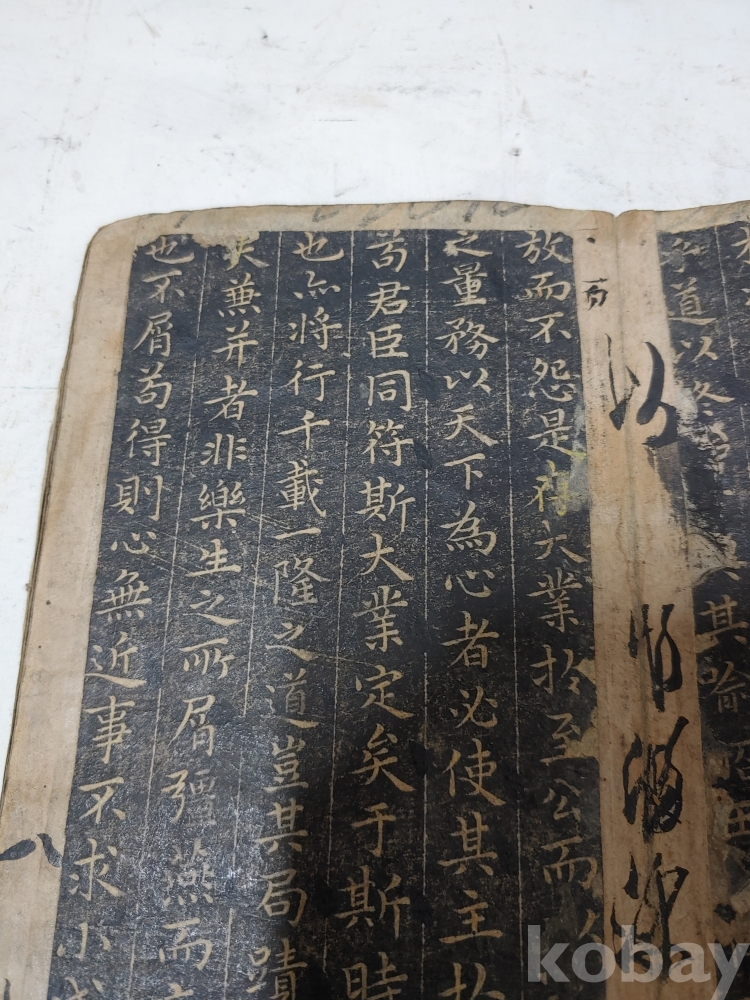 道以
其喻昭
以
放而不怨是存大業於至公而
之量務以天下為心者必使其主於
苟君臣同符斯大業定矣于斯時
也亦將行千載一隆之道豈其局蹟
夫兼并者非樂生之所屑彊燕而
也不屑苟得則心無近事不求小成
八
kobay